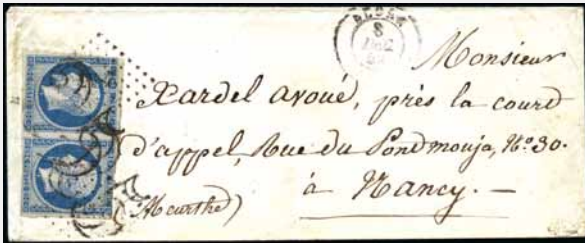 8
Monsieur
Xardel avoué, près la court
d'appel, Rue du Pondmouja, N° 30.
à Nancy. —
(Meurthe)